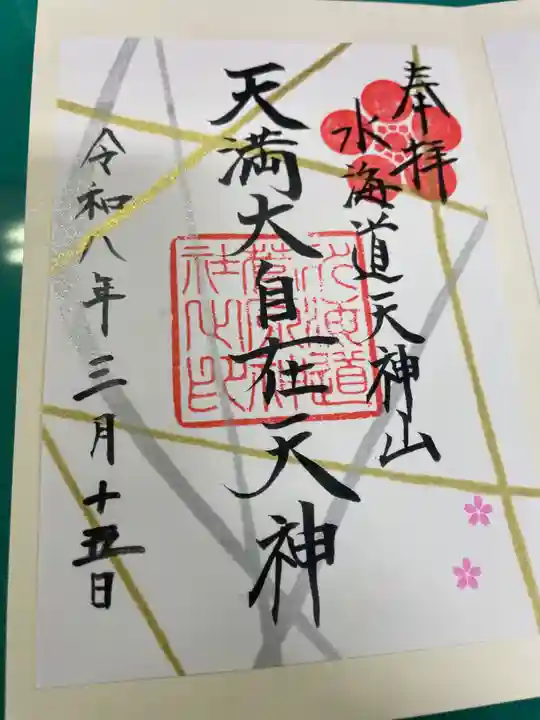 奉拝
水海道天神山
天満大自在天神
水海道
菅原神
社之印
令和八年三月十五日